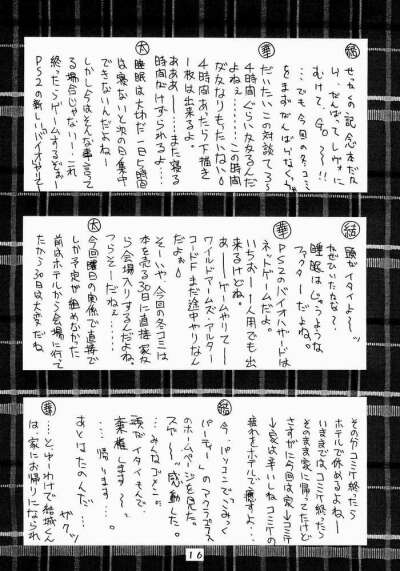 結
せっかくの記念本だな
し、がんばってレヴォに
むけて、Go〜〜!!
…でも今回の冬コミ
をまずがんばらなくちゃ
華
だいたいこの対談で
4時間ぐらい
よねぇ……この時間
もったいない。
4時間あれば下描き
1枚は出来るよ。
あああー…また寝る
時間がけずられるよ…
大
睡眠は大切だ 1日5時間
は寝ないと次の日集中
できないんだよねー
しかし今はそんな事言って
る場合じゃない!これ
終わったらゲームするぞおー
PS2の新しいバイオやりてー
結
頭がイタイよ〜ッ
睡眠はじゅうような
ファクターだよね。
華
PS2のバイオハザードは
ネットゲームだよ。
いちおー一人用でも出
来るけどね。
あーゲームやりてー
ワイルドアームズ・アルター
コードFまだ途中やりなん
だよぉ。
そーいや、今回の冬コミは
本を売る30日に直接家か
ら会場入りするんだよね。
つらそーだねぇ……
大
今回曜日の関係で直接で
しか予定が組めなかった
前はホテルから会場に行って
たから30日は大変だね
その分コミケ終わったら
ホテルで休めるよねー
いままではコミケ終わったら
そのまま家に帰ってたけど
さすがに今回は家→コミケ
→家は辛いしね コミケの
疲れをホテルで癒すよ…
結
今、パソコンでこみっく
パーティーのアクアプラス
のホームページを見た。
スゲ〜ッ 感動した。
…みんなごめん…
頭がイタイもんで
棄権します〜〜
……帰ります……。
あとはたのんだ…
ザクッ
華
…とゆーわけで結城くん
は家にお帰りになられ
16